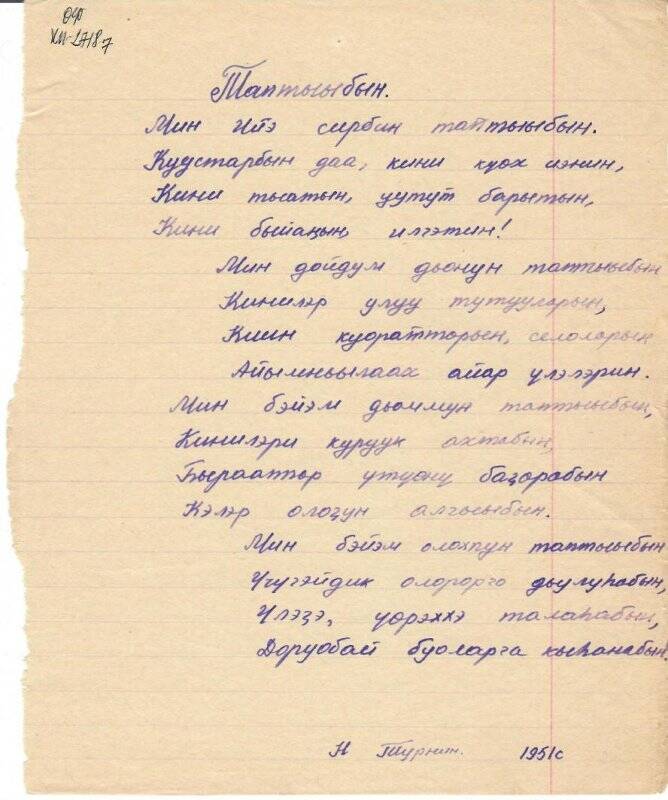 ОФ
КП-27187
Таптыыбын.
Мин Ийэ сирбин таптыыбын.
Куустарбын даа, кини күөх иэнин,
Кини тыатын, уутун барытын,
Кини быйаҥын, илгэтин!
Мин дойдум дьонун таптыыбын
Кинилэр улуу тутууларын,
Киин куораттарын, селоларын
Айымньылаах айар үлэлэрин.
Мин бэйэм дьоммун таптыыбын,
Кинилэри куруук ахтабын,
Бырааттыы утуону баҕарабын
Кэлэр олоҕун алгыыбын.
Мин бэйэм олохпун таптыыбын
Үчүгэйдик олорорго дьулуһабын,
Үлэҕэ, үөрэххэ талаһабын,
Доруобай буоларга кыһанабын.
Н Турнин. 1951с